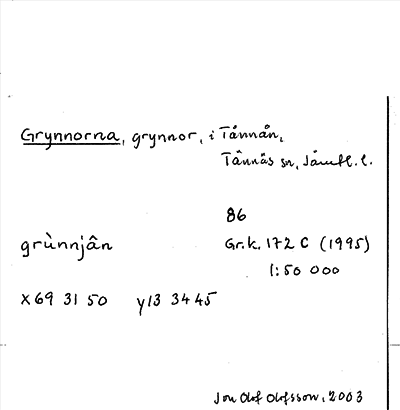 Grynnorna, grynnor, i Tånnån,
Tännäs sn, Jämtl. l.
86
grùnnjân Gr.k. 172 C (1995)
1:50 000
X69 31 50 y13 34 45
Jon Olof Olofsson, 2003